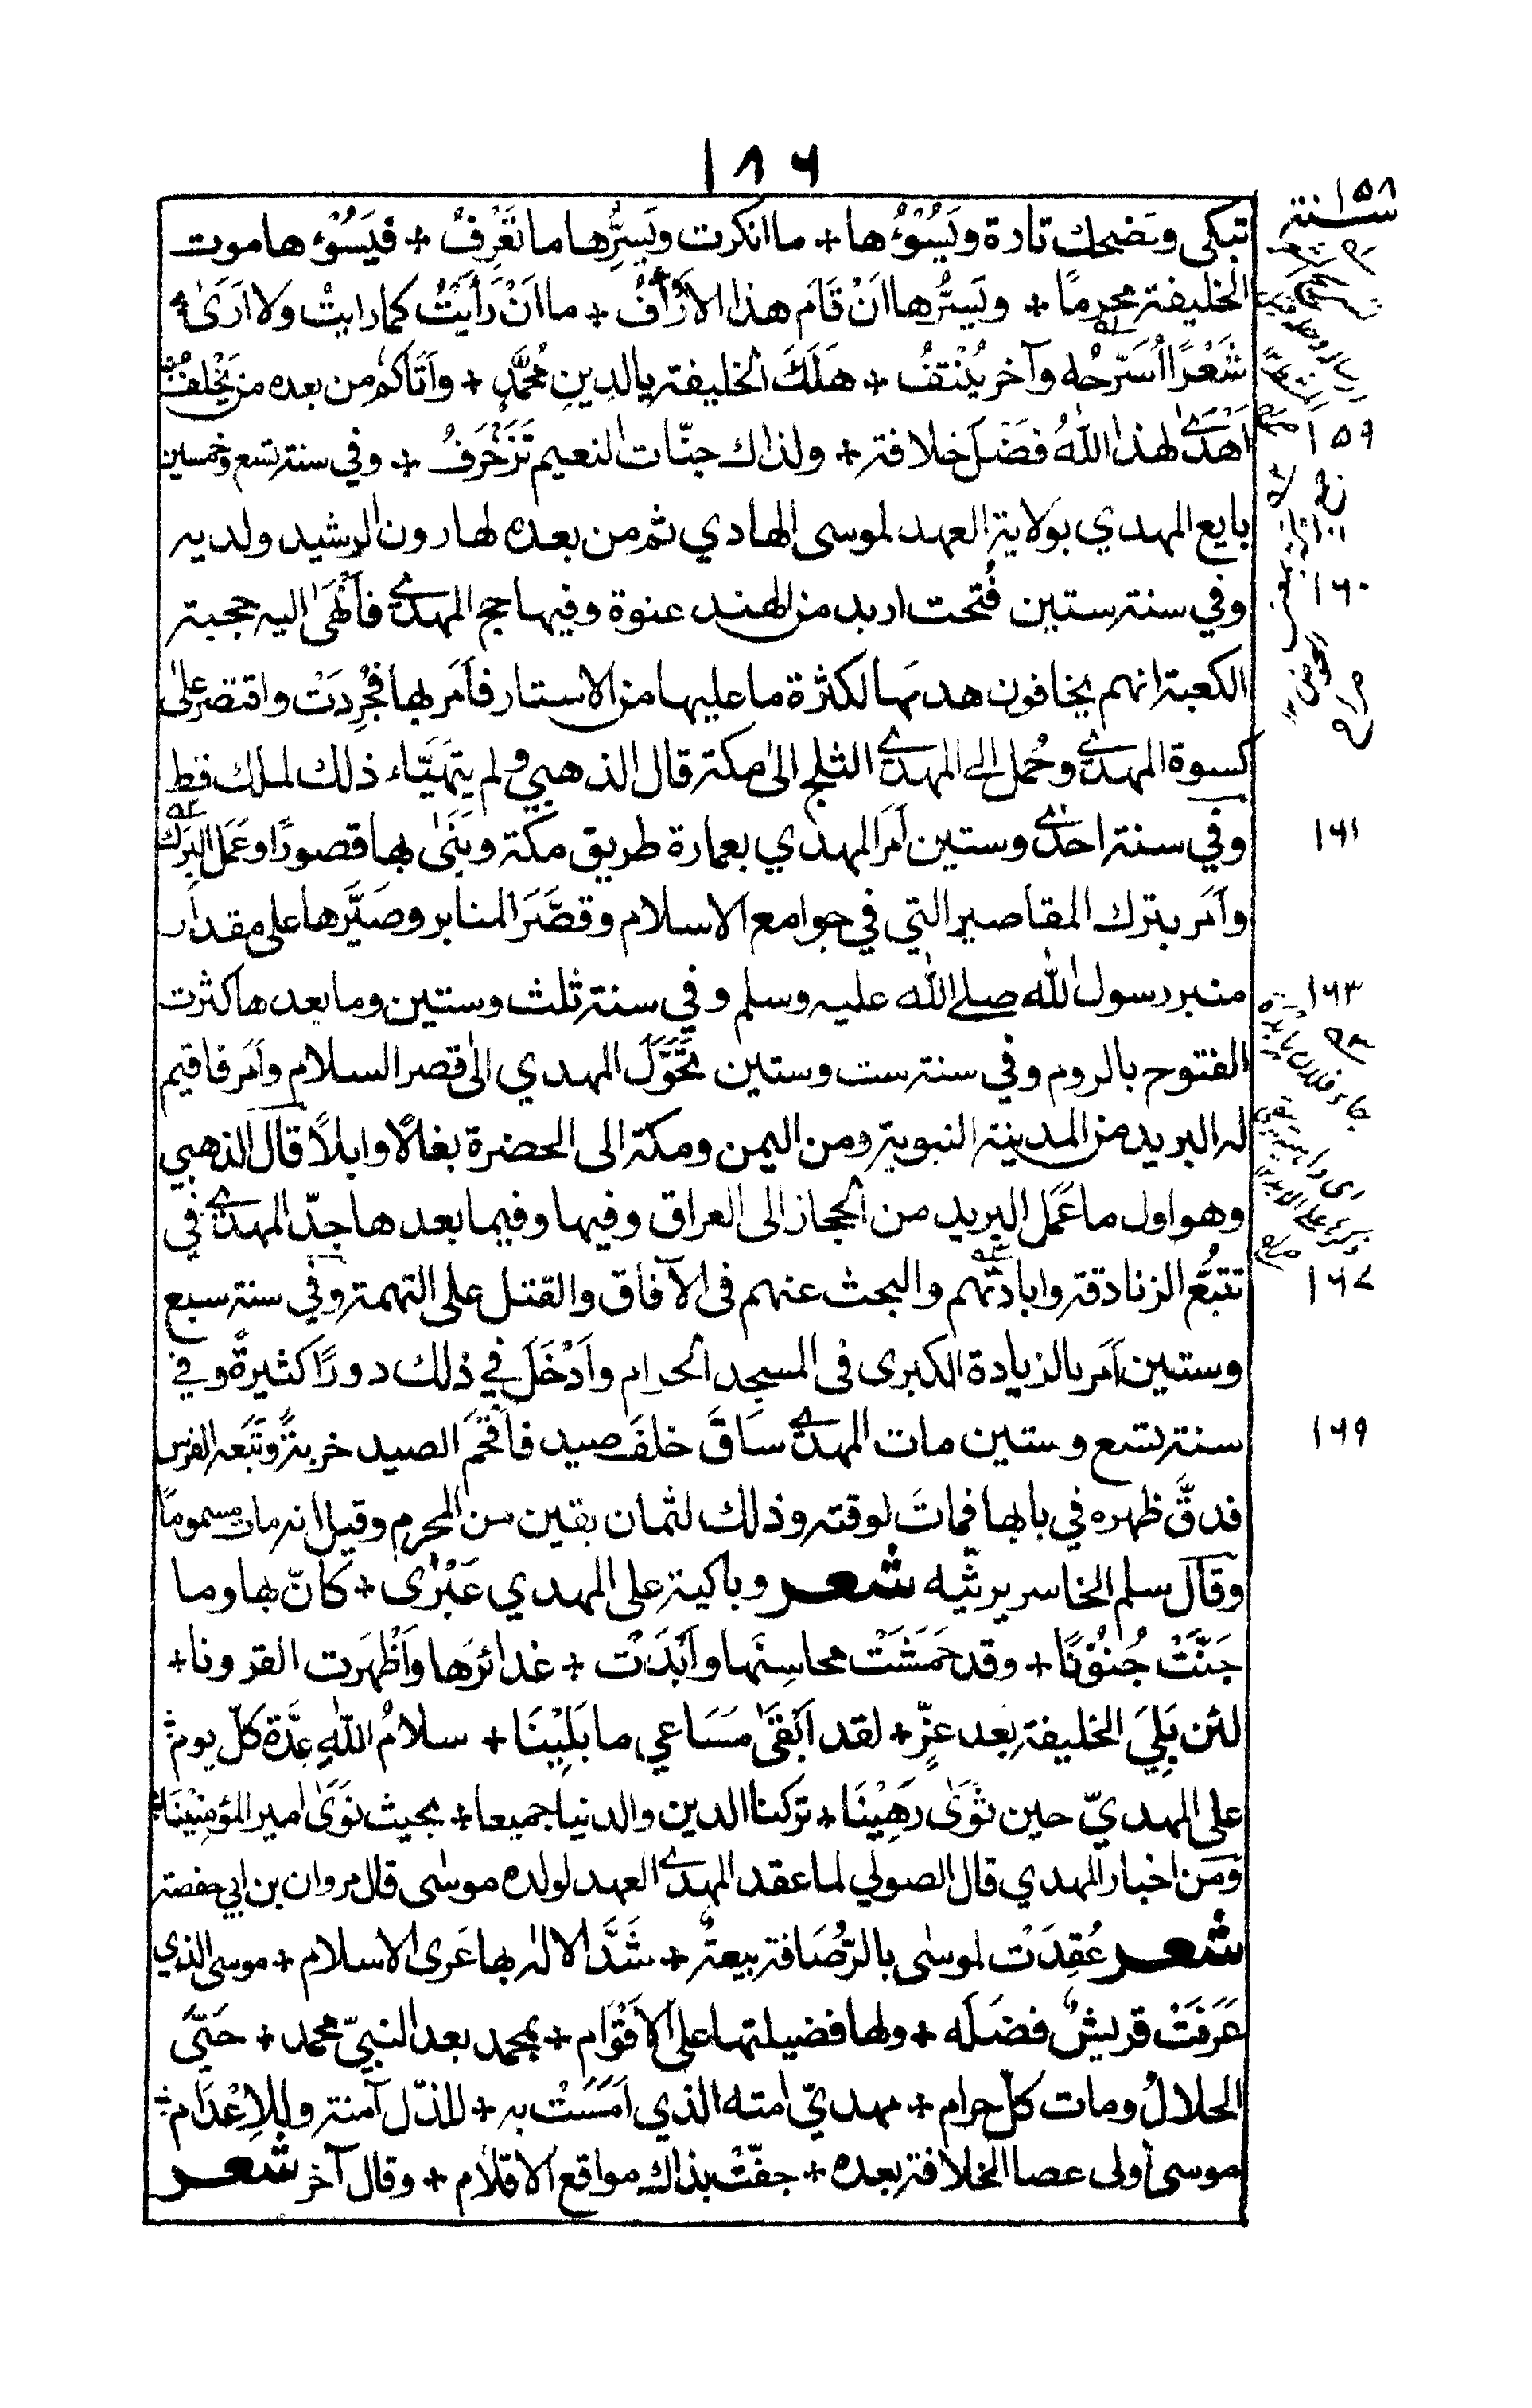 ١٨٦
سنة ١٥٨
تبكى وتضحك تارة ويَسُوْءُها + ما انكرت ويَسِرُّها ما تَعْرِفُ + فيَسُوْءُ ها موت
الخليفة محرمًا + ويَسِرُّها اَنْ قَامَ هذا الاَرْأَفُ + ما اَنْ رَأَيْتُ كما رايتُ ولا اَرَىٰ
شَعْرًا اُسَرِّحُه وآخر يُنْتَفُ + هَلَكَ الخليفة يالدينِ مُحَمَّدٍ + واَتَاكُم من بعده من يَخْلُفُ
اَهْدَىٰ لهذا اللهُ فَضْلَ خلافة + ولذاك جنّات النعيم تَزَخْرَفُ + وفي سنة تسع وخمسين
١٥٩
بايع المهدي بولاية العهد لموسى الهادي ثم من بعده لهارون الرشيد ولديه
وفي سنة ستين فُتحت اربد من الهند عنوة وفيها حج المهدي فاَنْهَىٰ اليه حجبة
١٦٠
الكعبة انهم يخافون هدمها لكثرة ما عليها من الاستار فاَمَر بها فجُرِدَتْ واقتصر على
كسوة المهدي وحُمل الى المهدي الثلج الىٰ مكة قال الذهبي ولم يتهيّاء ذلك لملك قط
وفي سنة احدى وستين اَمَر المهدي بعمارة طريق مكة وبَنَىٰ بها قصورًا وعَمَل البرك
١٦١
واَمَر بترك المقاصير التي في جوامع الاسلام وقصَّرَ المنابر وصَيَّرها على مقدار
منبر رسول الله صلى الله عليه وسلم وفي سنة ثلث وستين وما بعدها كثرت
١٦٣
الفتوح بالروم وفي سنة ست وستين تحَوَّلَ المهدي الىٰ قصر السلام واَمَر فاقيم
له البريد من المدينة النبوية ومن اليمن ومكة الى الحضرة بغالًا وابلًا قال الذهبي
وهو اول ما عُمل البريد من الحجاز الى العراق وفيها وفيما بعدها جدّ المهدي في
تتبُّع الزنادقة وابادتهم والبحث عنهم فى الآفاق والقتل على التهمة وفي سنة سبع
١٦٧
وستين اَمَر بالزيادة الكبرى فى المسجد الحرام واَدْخَلَ في ذلك دورًا كثيرةً وفي
سنة تسع وستين مات المهدي ساقَ خلفَ صيد فاقْتَحَمَ الصيد خربةً وتَبَعه الفرس
١٦٩
فدقَّ ظهره في بابها فماتَ لوقته وذلك لثمان بقين من المحرم وقيل انه مات مسموما
وقال سلم الخاسر يرثيه شعر وباكية على المهدي عَبْرىٰ + كانّ بها وما
جَنَّتْ جُنُوْنًا + وقد خَمَشَتْ محاسِنَها واَبْدَتْ + غدائرَها واَظْهَرَت القرونا +
لئن بَلِيَ الخليفة بعد عِزّ + لقد اَبْقَىٰ مَسَاعِي ما بَلِيْنَا + سلامُ اللهِ عِدَّةَ كلّ يوم
على المهديّ حين ثَوَىٰ رَهِيْنَا + تركنا الدين والدنيا جميعا + بحيث ثوىٰ امير المؤمِنِيْنَا
ومن اخبار المهدي قال الصولي لما عقد المهدي العهد لولده موسٰى قال مروان بن ابي حفصة
شعر عُقِدَتْ لموسى بالرُّصَافة بيعةٌ + شَدَّ الالٰه بها عَرى الاسلام + موسى الذي
عَرَفَتْ قريشٌ فضلَه + ولها فضيلتها على الاَقْوَام + بمحمد بعد النبيّ محمد + حَيَّى
الحلالُ ومات كلّ حرام + مهديّ امته الذي اَمْسَتْ به + للذّل آمنة وللاِعْدَام
موسى اَولى عصا الخلافة بعده + جفّتْ بذاك مواقع الاقلام + وقال آخر شعر